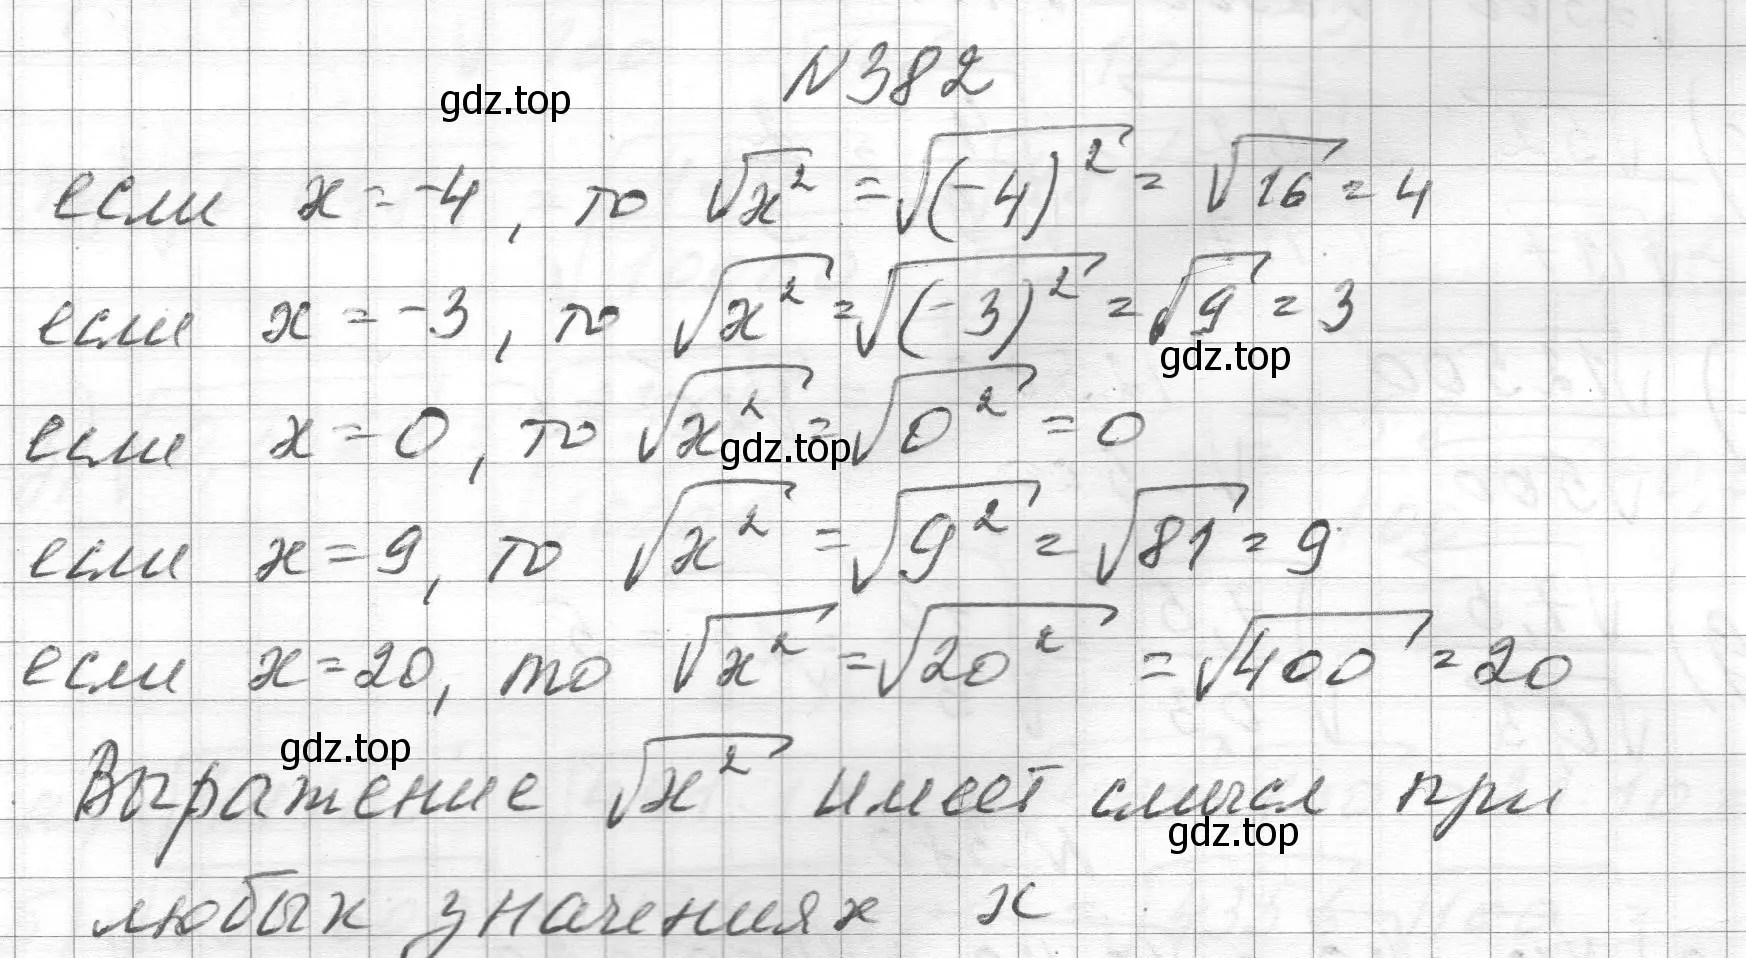 N382
gdz.top
если x=-4, то √x² = √(-4)² = √16 = 4
если x=-3, то √x² = √(-3)² = √9 = 3
gdz.top
если x=0, то √x² = √0² = 0
gdz.top
если x=9, то √x² = √9² = √81 = 9
если x=20, то √x² = √20² = √400 = 20
gdz.top
Выражение √x² имеет смысл при
gdz.top
любых значениях x